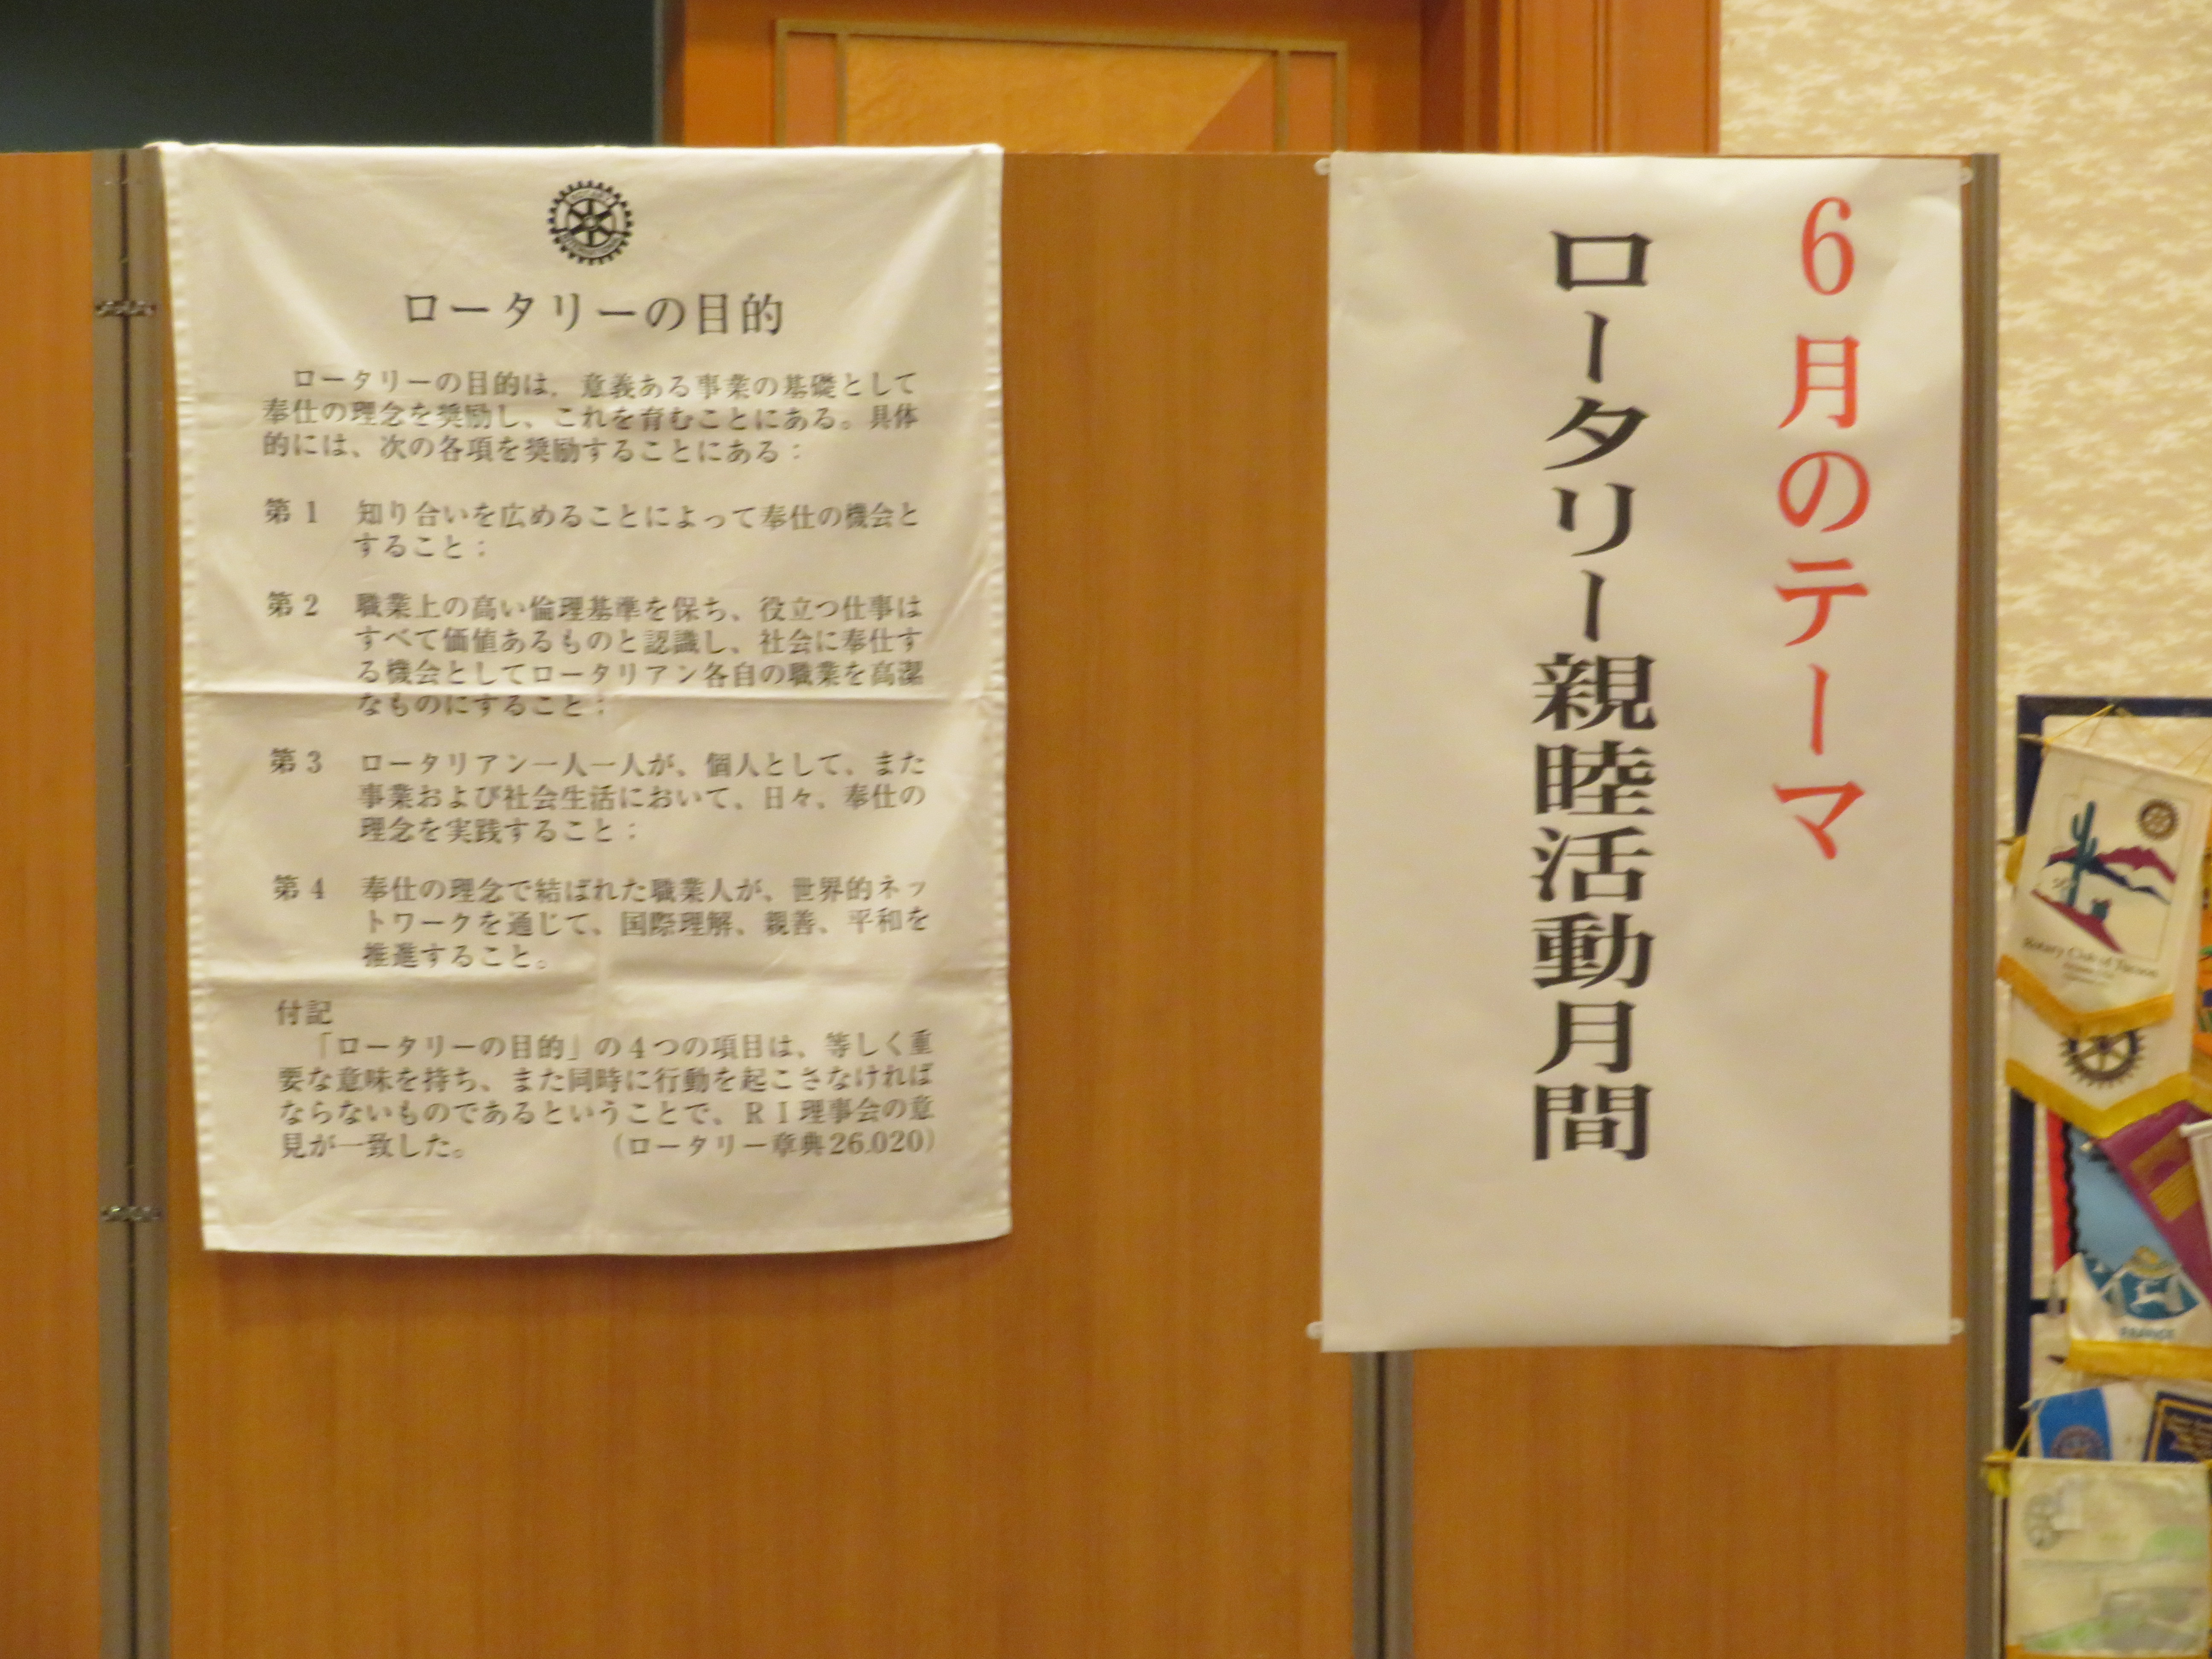 ロータリーの目的
ロータリーの目的は、意義ある事業の基礎として
奉仕の理念を奨励し、これを育むことにある。具体
的には、次の各項を奨励することにある：
第１　知り合いを広めることによって奉仕の機会と
すること；
第２　職業上の高い倫理基準を保ち、役立つ仕事は
すべて価値あるものと認識し、社会に奉仕す
る機会としてロータリアン各自の職業を高潔
なものにすること：
第３　ロータリアン一人一人が、個人として、また
事業および社会生活において、日々、奉仕の
理念を実践すること；
第４　奉仕の理念で結ばれた職業人が、世界的ネッ
トワークを通じて、国際理解、親善、平和を
推進すること。
付記
「ロータリーの目的」の４つの項目は、等しく重
要な意味を持ち、また同時に行動を起こさなければ
ならないものであるということで、ＲＩ理事会の意
見が一致した。　（ロータリー章典26.020）
6月のテーマ
ロータリー親睦活動月間
Rotary Club of Tucson
FRANCE